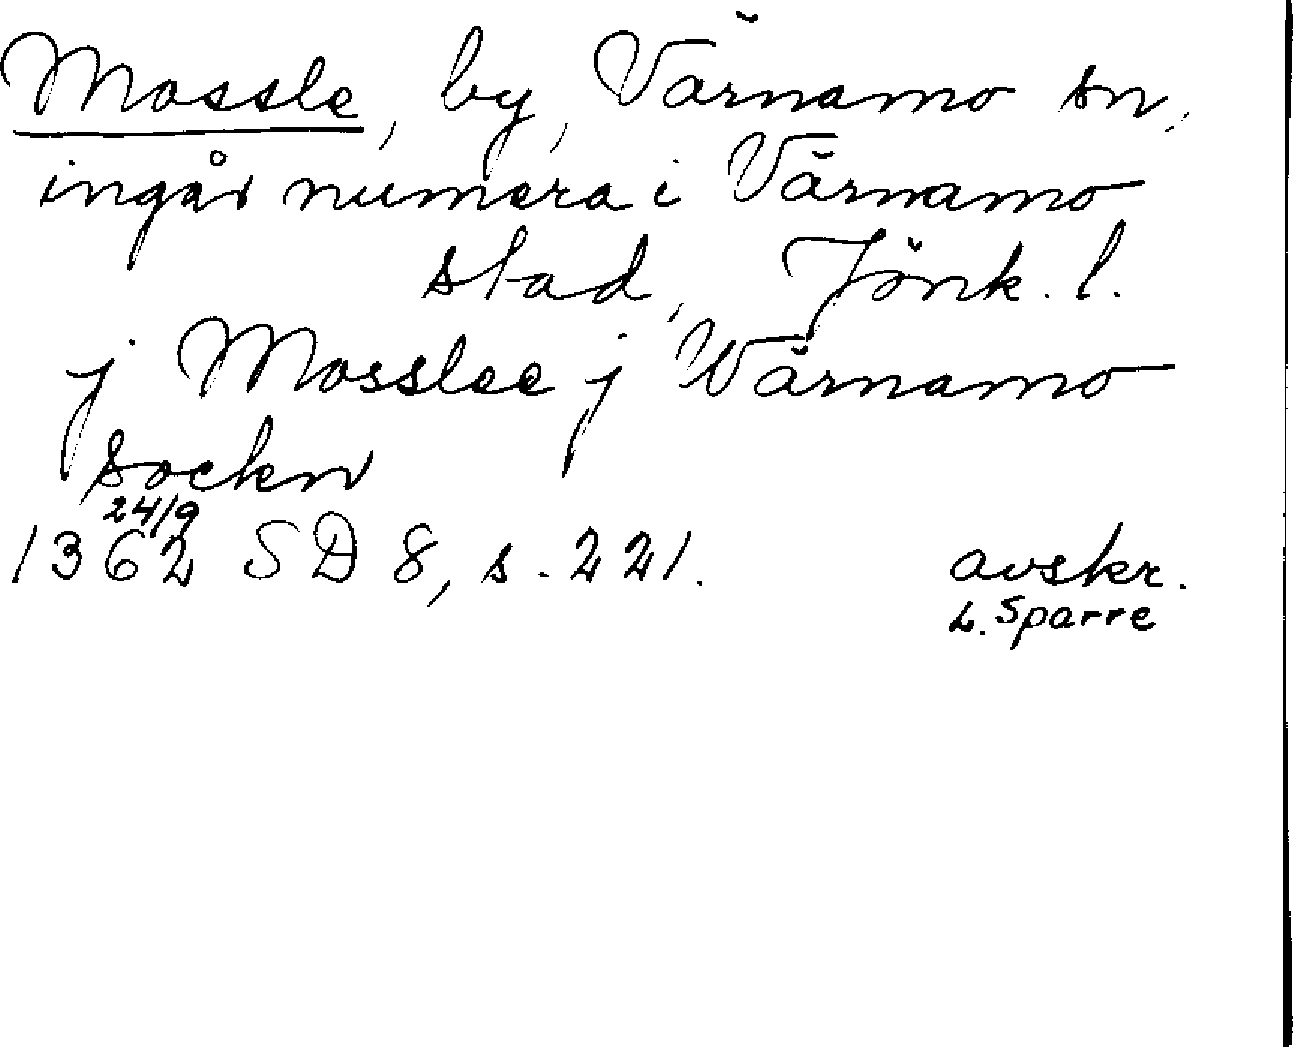 Mossle, by, Värnamo sn,
ingår numera i Värnamo
stad, Jönk. l.
j Mosslee j Wärnamo
sockn
24/9
1362 SD 8, s. 221. avskr.
L. Sparre